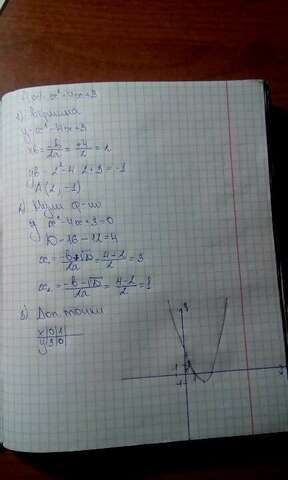 y = x² - 4x + 3
1) Вершина
y = x² - 4x + 3
xв = -b/2a = +4/2 = 2
yв = 2² - 4·2 + 3 = -1
A (2, -1)
2) Нули ф-ии
x² - 4x + 3 = 0
D = 16 - 12 = 4
x₁ = -b+√D/2a = 4+2/2 = 3
x₂ = -b-√D/2a = 4-2/2 = 1
3) Доп. точки
x | 0 | 1
y | 3 | 0
y
x